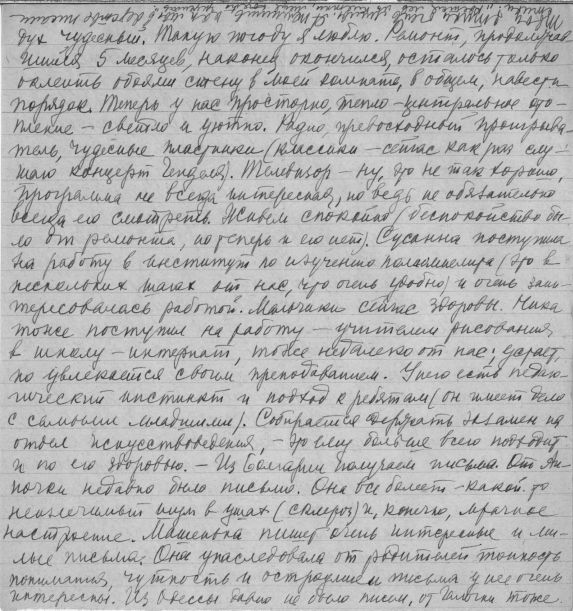 дух чудесный. Такую погоду я люблю. Ремонт, продолжав
шийся 5 месяцев, наконец окончился, осталось только
оклеить обоями стену в моей комнате, в общем, навести
порядок. Теперь у нас просторно, тепло – центральное ото-
пление – светло и уютно. Радио, превосходный проигрыва-
тель, чудесные пластинки (классики – сейчас как раз слу-
шаю концерт Генделя). Телевизор – ну, это не так хорошо,
программа не всегда интересная, но ведь не обязательно
всегда его смотреть. Живем спокойно (беспокойство бы-
ло от ремонта, но теперь и его нет). Сусанна поступила
на работу в институт по изучению полиомиелита (это в
нескольких шагах от нас, что очень удобно) и очень заин-
тересовалась работой. Мальчики сейчас здоровы. Ника
тоже поступил на работу – учителем рисования
в школу-интернат, тоже недалеко от нас; устает,
но увлекается своим преподаванием. У него есть педаго-
гический инстинкт и подход к ребятам (он имеет дело
с самыми младшими). Собирается держать экзамен на
отдел искусствоведения, – это ему больше всего подходит
и по его здоровью. – Из Болгарии получаем письма. От Ан-
ночки недавно было письмо. Она все болеет – какой-то
неизлечимый шум в ушах (склероз) и, конечно, мрачное
настроение. Машенька пишет очень интересные и ми-
лые письма. Она унаследовала от родителей тонкость
понимания, чуткость и остроумие и письма у нее очень
интересны. Из Одессы давно не было писем, от тоже